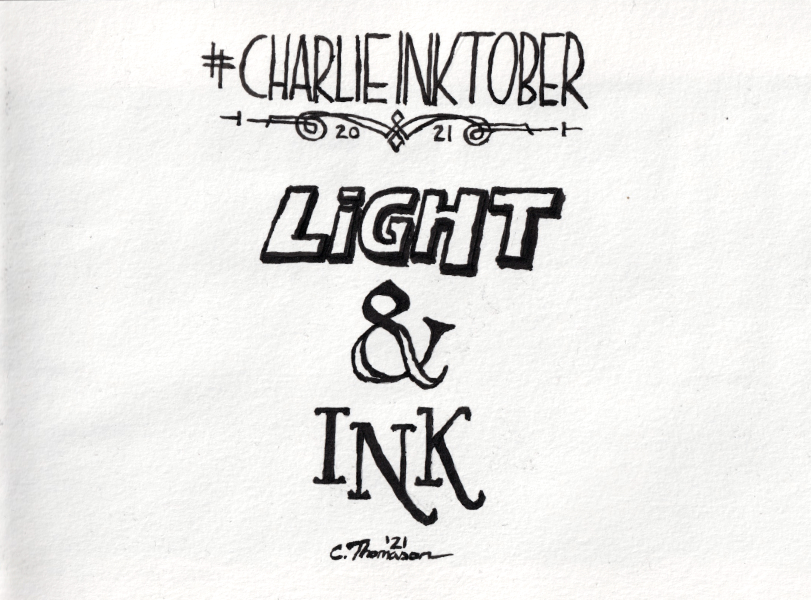 #CHARLIEINKTOBER
20 21
LiGHT
&
INK
C. Thomason '21